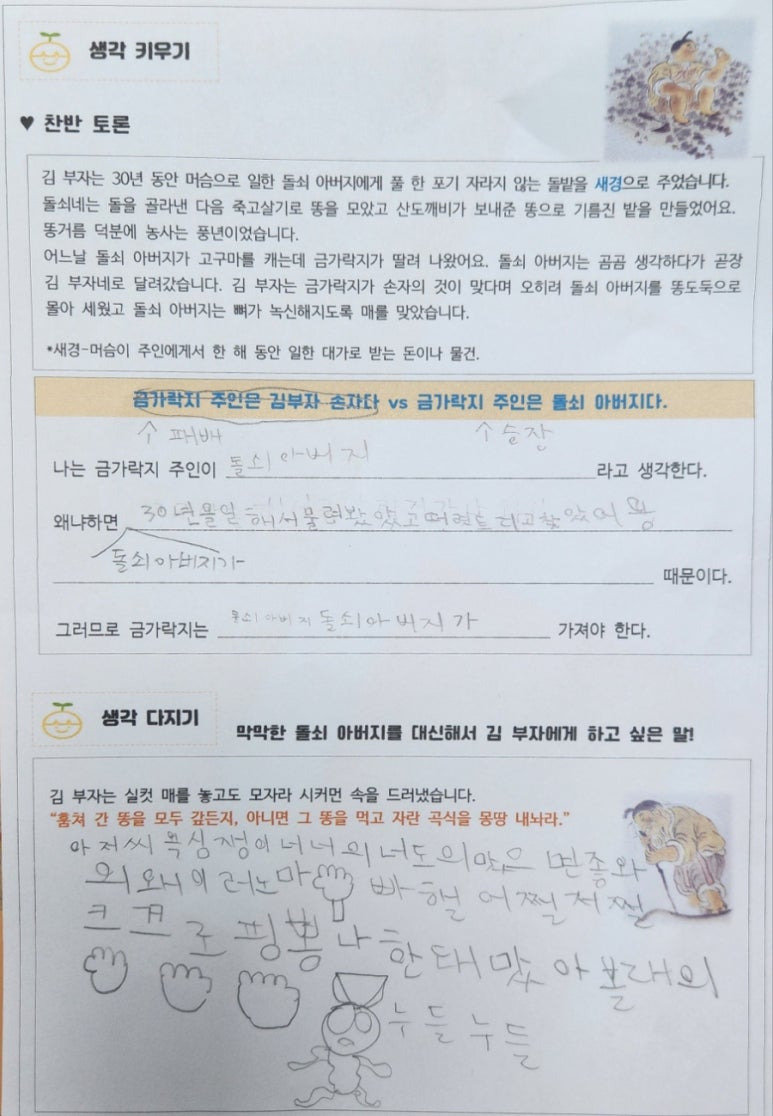 생각 키우기
♥ 찬반 토론
김 부자는 30년 동안 머슴으로 일한 돌쇠 아버지에게 풀 한 포기 자라지 않는 돌밭을 새경으로 주었습니다.
돌쇠네는 돌을 골라낸 다음 죽고살기로 똥을 모았고 산도깨비가 보내준 똥으로 기름진 밭을 만들었어요.
똥거름 덕분에 농사는 풍년이었습니다.
어느날 돌쇠 아버지가 고구마를 캐는데 금가락지가 딸려 나왔어요. 돌쇠 아버지는 곰곰 생각하다가 곧장
김 부자네로 달려갔습니다. 김 부자는 금가락지가 손자의 것이 맞다며 오히려 돌쇠 아버지를 똥도둑으로
몰아 세웠고 돌쇠 아버지는 뼈가 녹신해지도록 매를 맞았습니다.
*새경-머슴이 주인에게서 한 해 동안 일한 대가로 받는 돈이나 물건.
금가락지 주인은 김부자 손자다 vs 금가락지 주인은 돌쇠 아버지다.
↑ 패배 ↑ 승장
나는 금가락지 주인이 돌쇠아버지 라고 생각한다.
왜냐하면 30년 일 해서
돌쇠아버지가
때문이다.
그러므로 금가락지는 돌쇠아버지 돌쇠아버지가 가져야 한다.
생각 다지기
막막한 돌쇠 아버지를 대신해서 김 부자에게 하고 싶은 말!
김 부자는 실컷 매를 놓고도 모자라 시커먼 속을 드러냈습니다.
“훔쳐 간 똥을 모두 갚든지, 아니면 그 똥을 먹고 자란 곡식을 몽땅 내놔라.”
아저씨 욕심쟁이 너 너도 면 좋와
마 빠 어쩔저쩔
크끄 로 핑뽕 나한태 맜아볼래
누들누들